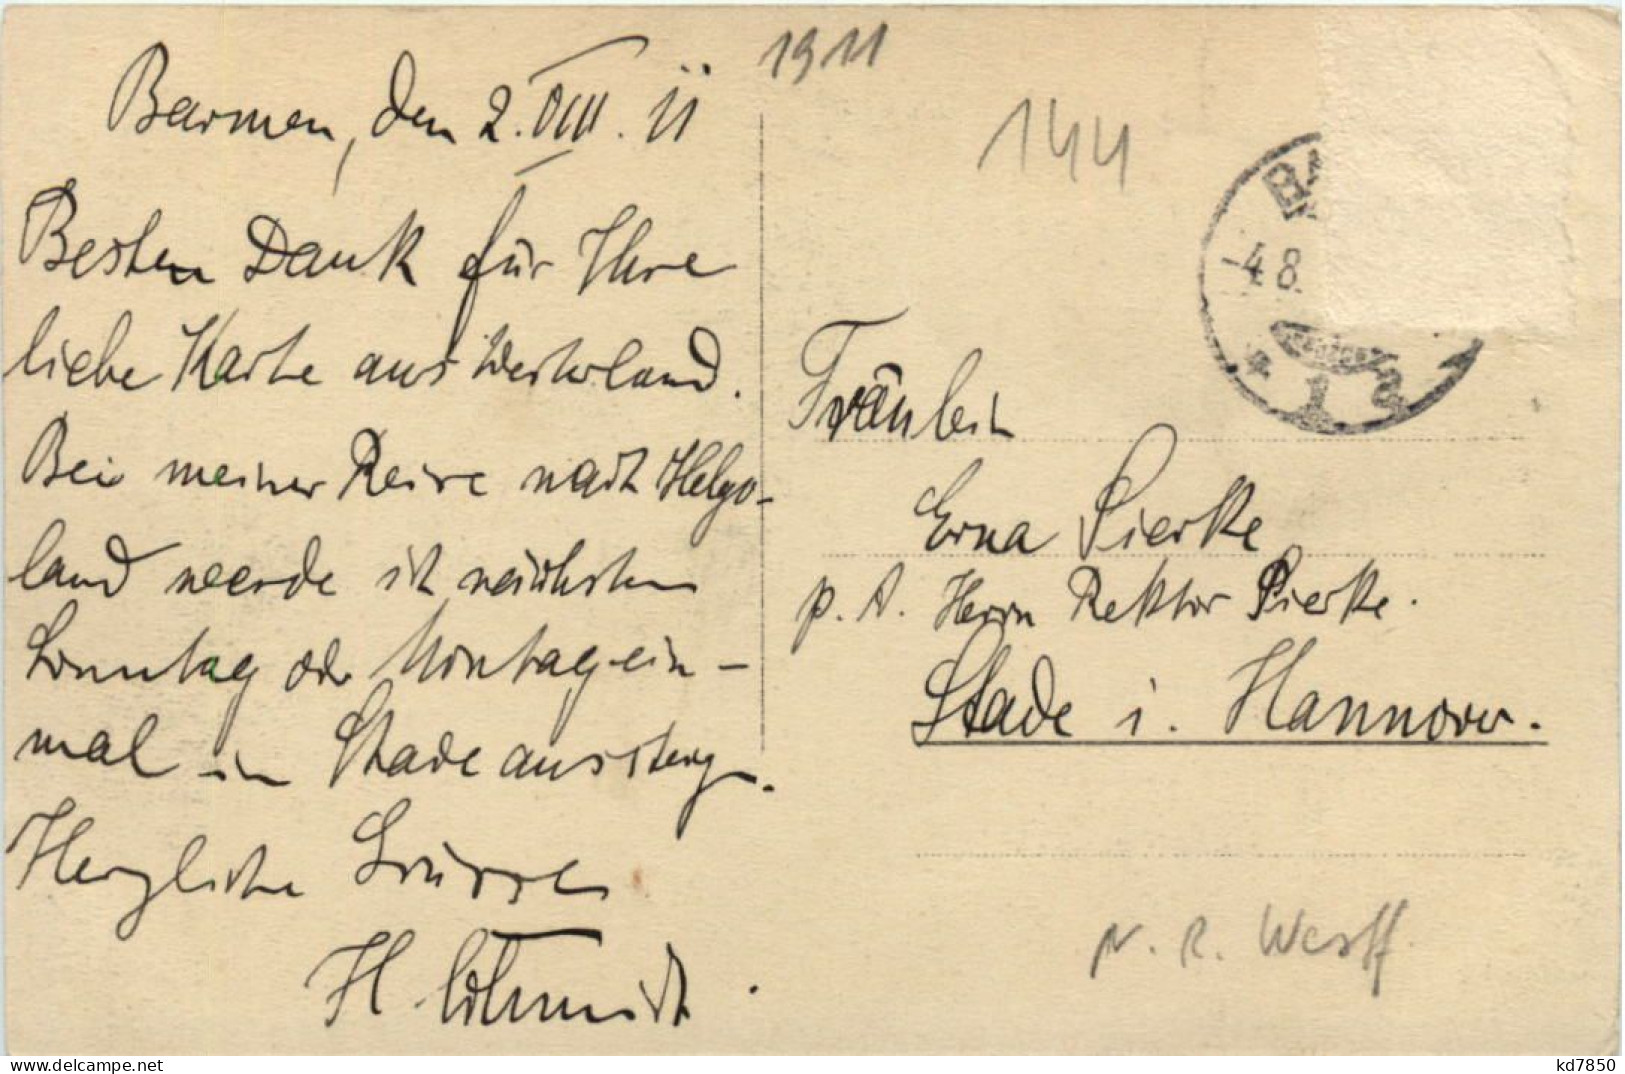 1911
Barmen, den 2. VIII. 11
144
Besten Dank für Ihre
liebe Karte aus Westerland.
Bei meiner Reise nach Helgo-
land werde ich nächsten
Sonntag oder Montag ein-
mal in Stade aussteigen.
Herzliche Grüsse
H. Schmidt.
BA
-4 8.
* 1
Fräulein
Erna Pierke
p. A. Herrn Rektor Pierke.
Stade i. Hannover.
N. R. Werff
delcampe.net
kd7850